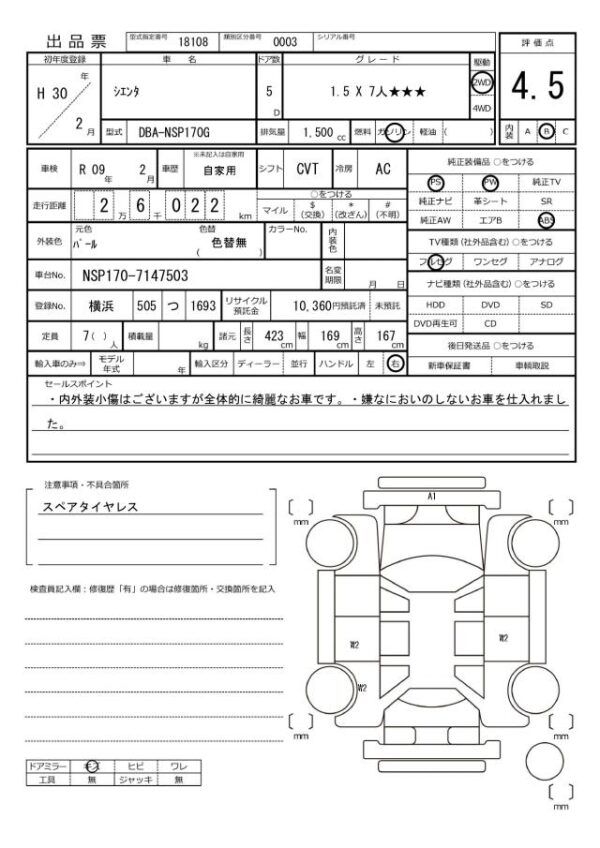 出品票 型式指定番号 18108 類別区分番号 0003 シリアル番号
評価点
4.5
初年度登録 車名 ドア数 グレード 駆動
H 30 年 2 月 シエンタ 5 D 1.5 X 7人★★★ 2WD 4WD
型式 DBA-NSP170G 排気量 1,500 cc 燃料 ガソリン 軽油 ( ) 内装 A B C
車検 R 09 年 2 月 車歴 ※未記入は自家用 自家用 シフト CVT 冷房 AC
純正装備品 ○をつける
PS PW 純正TV
純正ナビ 革シート SR
純正AW エアB ABS
走行距離 2 万 6 千 0 2 2 km ○をつける マイル $ (交換) * (改ざん) # (不明)
外装色 元色 パール 色替 色替無 ( ) カラーNo. 内装色
TV種類 (社外品含む) ○をつける
フルセグ ワンセグ アナログ
車台No. NSP170-7147503 名変期限 月 日
ナビ種類 (社外品含む) ○をつける
HDD DVD SD
DVD再生可 CD
登録No. 横浜 505 つ 1693 リサイクル預託金 10,360円預託済 未預託
定員 7( ) 人 積載量 kg 諸元 長さ 423 cm 幅 169 cm 高さ 167 cm
後日発送品 ○をつける
新車保証書 車輌取説
輸入車のみ⇒ モデル年式 年 輸入区分 ディーラー 並行 ハンドル 左 右
セールスポイント
・内外装小傷はございますが全体的に綺麗なお車です。・嫌なにおいのしないお車を仕入れまし
た。
注意事項・不具合箇所
スペアタイヤレス
検査員記入欄：修復歴「有」の場合は修復箇所・交換箇所を記入
A1
〔 〕 mm
〔 〕 mm
W2
W2
W2
〔 〕 mm
〔 〕 mm
〔 〕 mm
ドアミラー キズ ヒビ ワレ
工具 無 ジャッキ 無